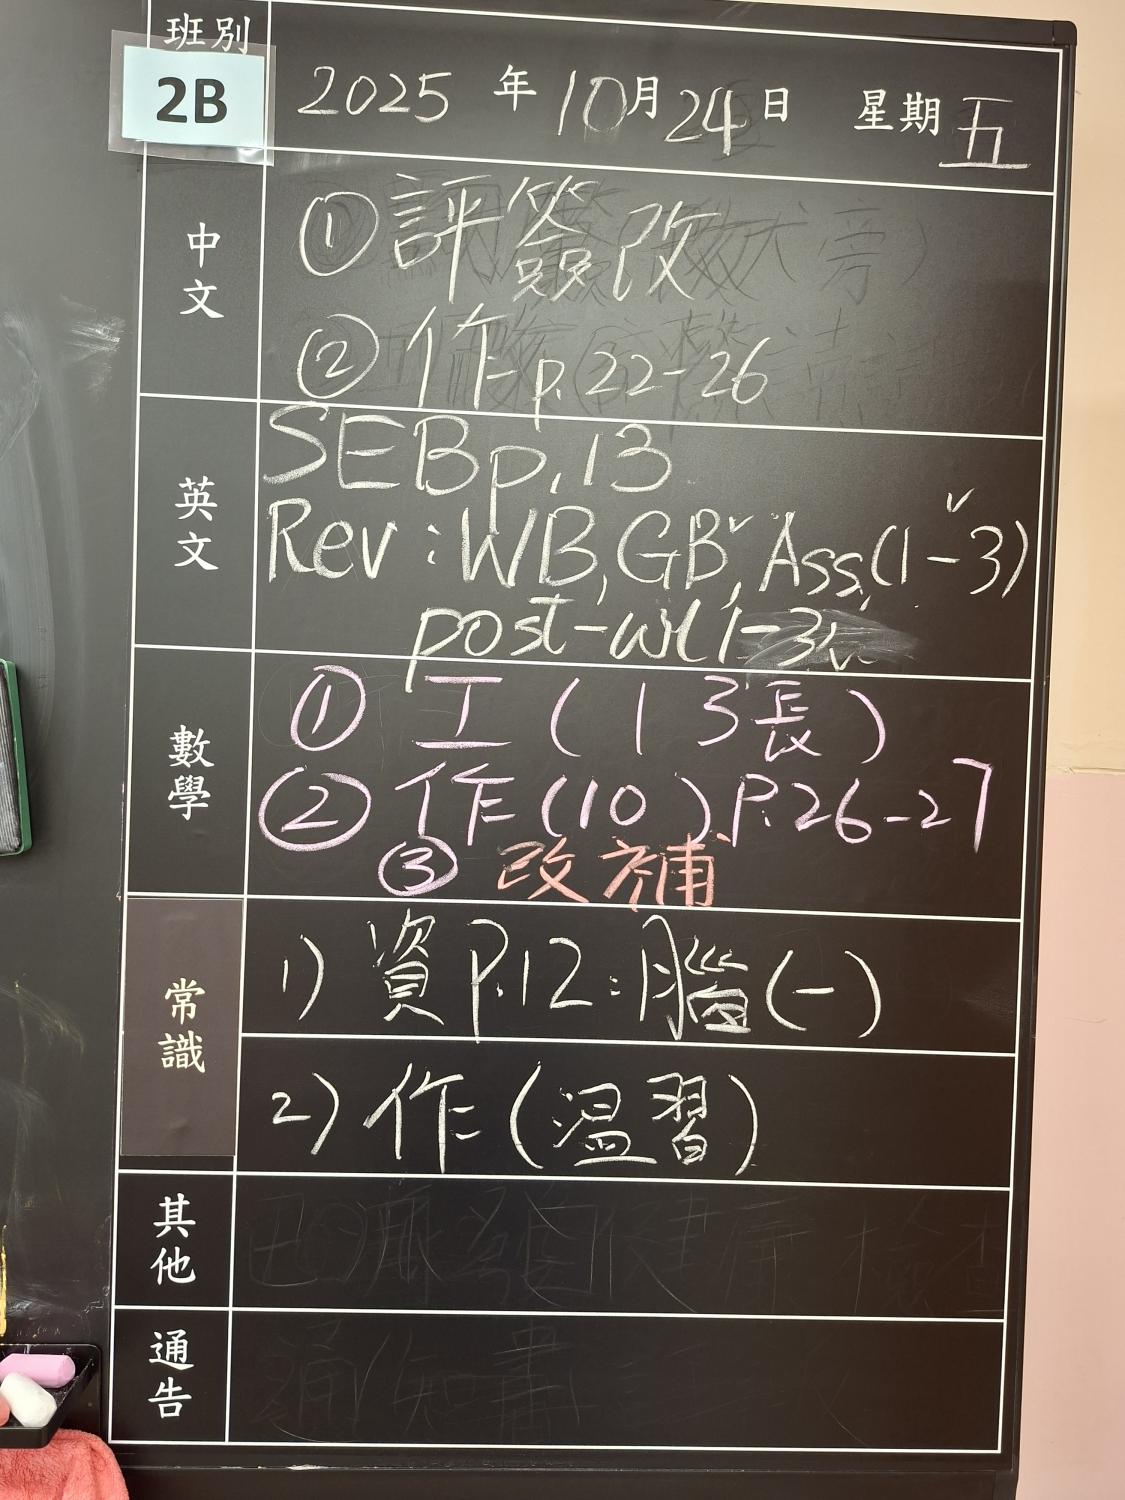 班別
2B
2025年10月24日 星期五
中文
①評簽改
②作p.22-26
英文
SEB p.13
Rev: WB, GB, Ass.(1-3)
post-w(1-3)
數學
①工(13長)
②作(10)P.26-27
③改補
常識
1)資P.12:腦(一)
2)作(温習)
其他
通告